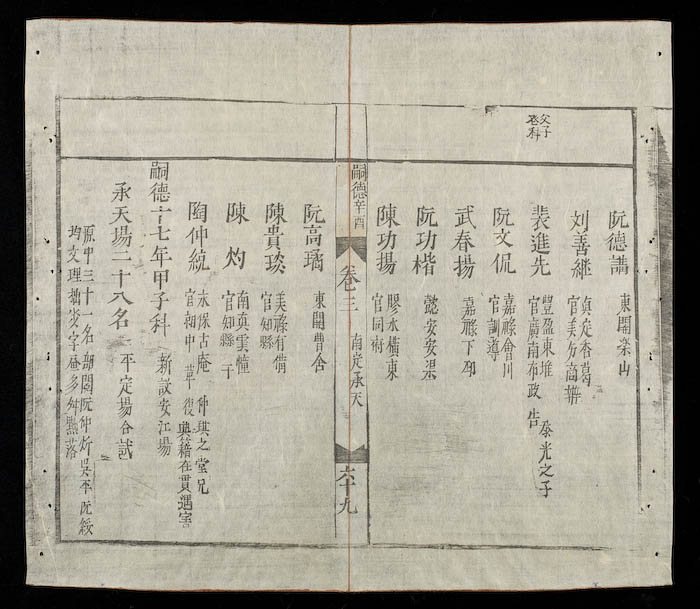 父子
登科
阮德講 東關棠山
刘善継 真定香葛
官美夯高辨
裴進先 豐盈東堆
官廣南布政 告 泰光之子
阮文侃 嘉祿會川
官訓導
武春揚 嘉祿下邳
阮功楷 懿安安渠
陳功揚 膠水橫東
官同府
嗣德辛酉 卷三 南定承天 六十九
阮高璚 東關曹舍
陳貴琰 美祿有備
官知縣
陳灼 南真雲幢
官知縣 干
陶仲統 永保古庵 仲琪之堂兄
官郎中 革 復 典籍在貫遇害
嗣德十七年甲子科 新設安江場
承天場二十八名 平定場合試
原中三十一名 部閱阮仲炘吳平阮綏
均文理 字 多舛黜落